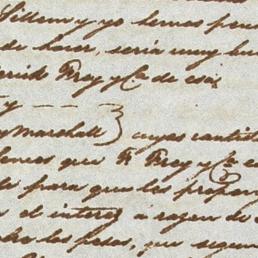 Sillem y yo hemos pen
de hacer, seria muy bu
Frey y Ca. de esa
y
y Marshall } cuyas cantid
que F. Frey y Ca. e
para que les propon
el interes a razon de
los pesos, que segun